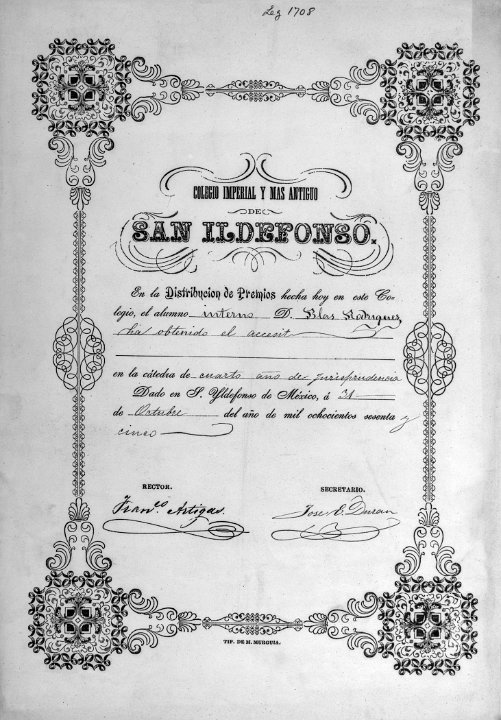 Leg 1708
COLEGIO IMPERIAL Y MAS ANTIGUO
DE
SAN ILDEFONSO.
En la Distribucion de Premios hecha hoy en este Co-
legio, el alumno interno D. Blas Rodriguez
ha obtenido el accesit
en la cátedra de cuarto año de jurisprudencia
Dado en S. Yldefonso de México, á 31
de Octubre del año de mil ochocientos sesenta y
cinco
RECTOR.
SECRETARIO.
Franco. Artigas.
Jose E. Duran
TIP. DE M. MURGUIA.